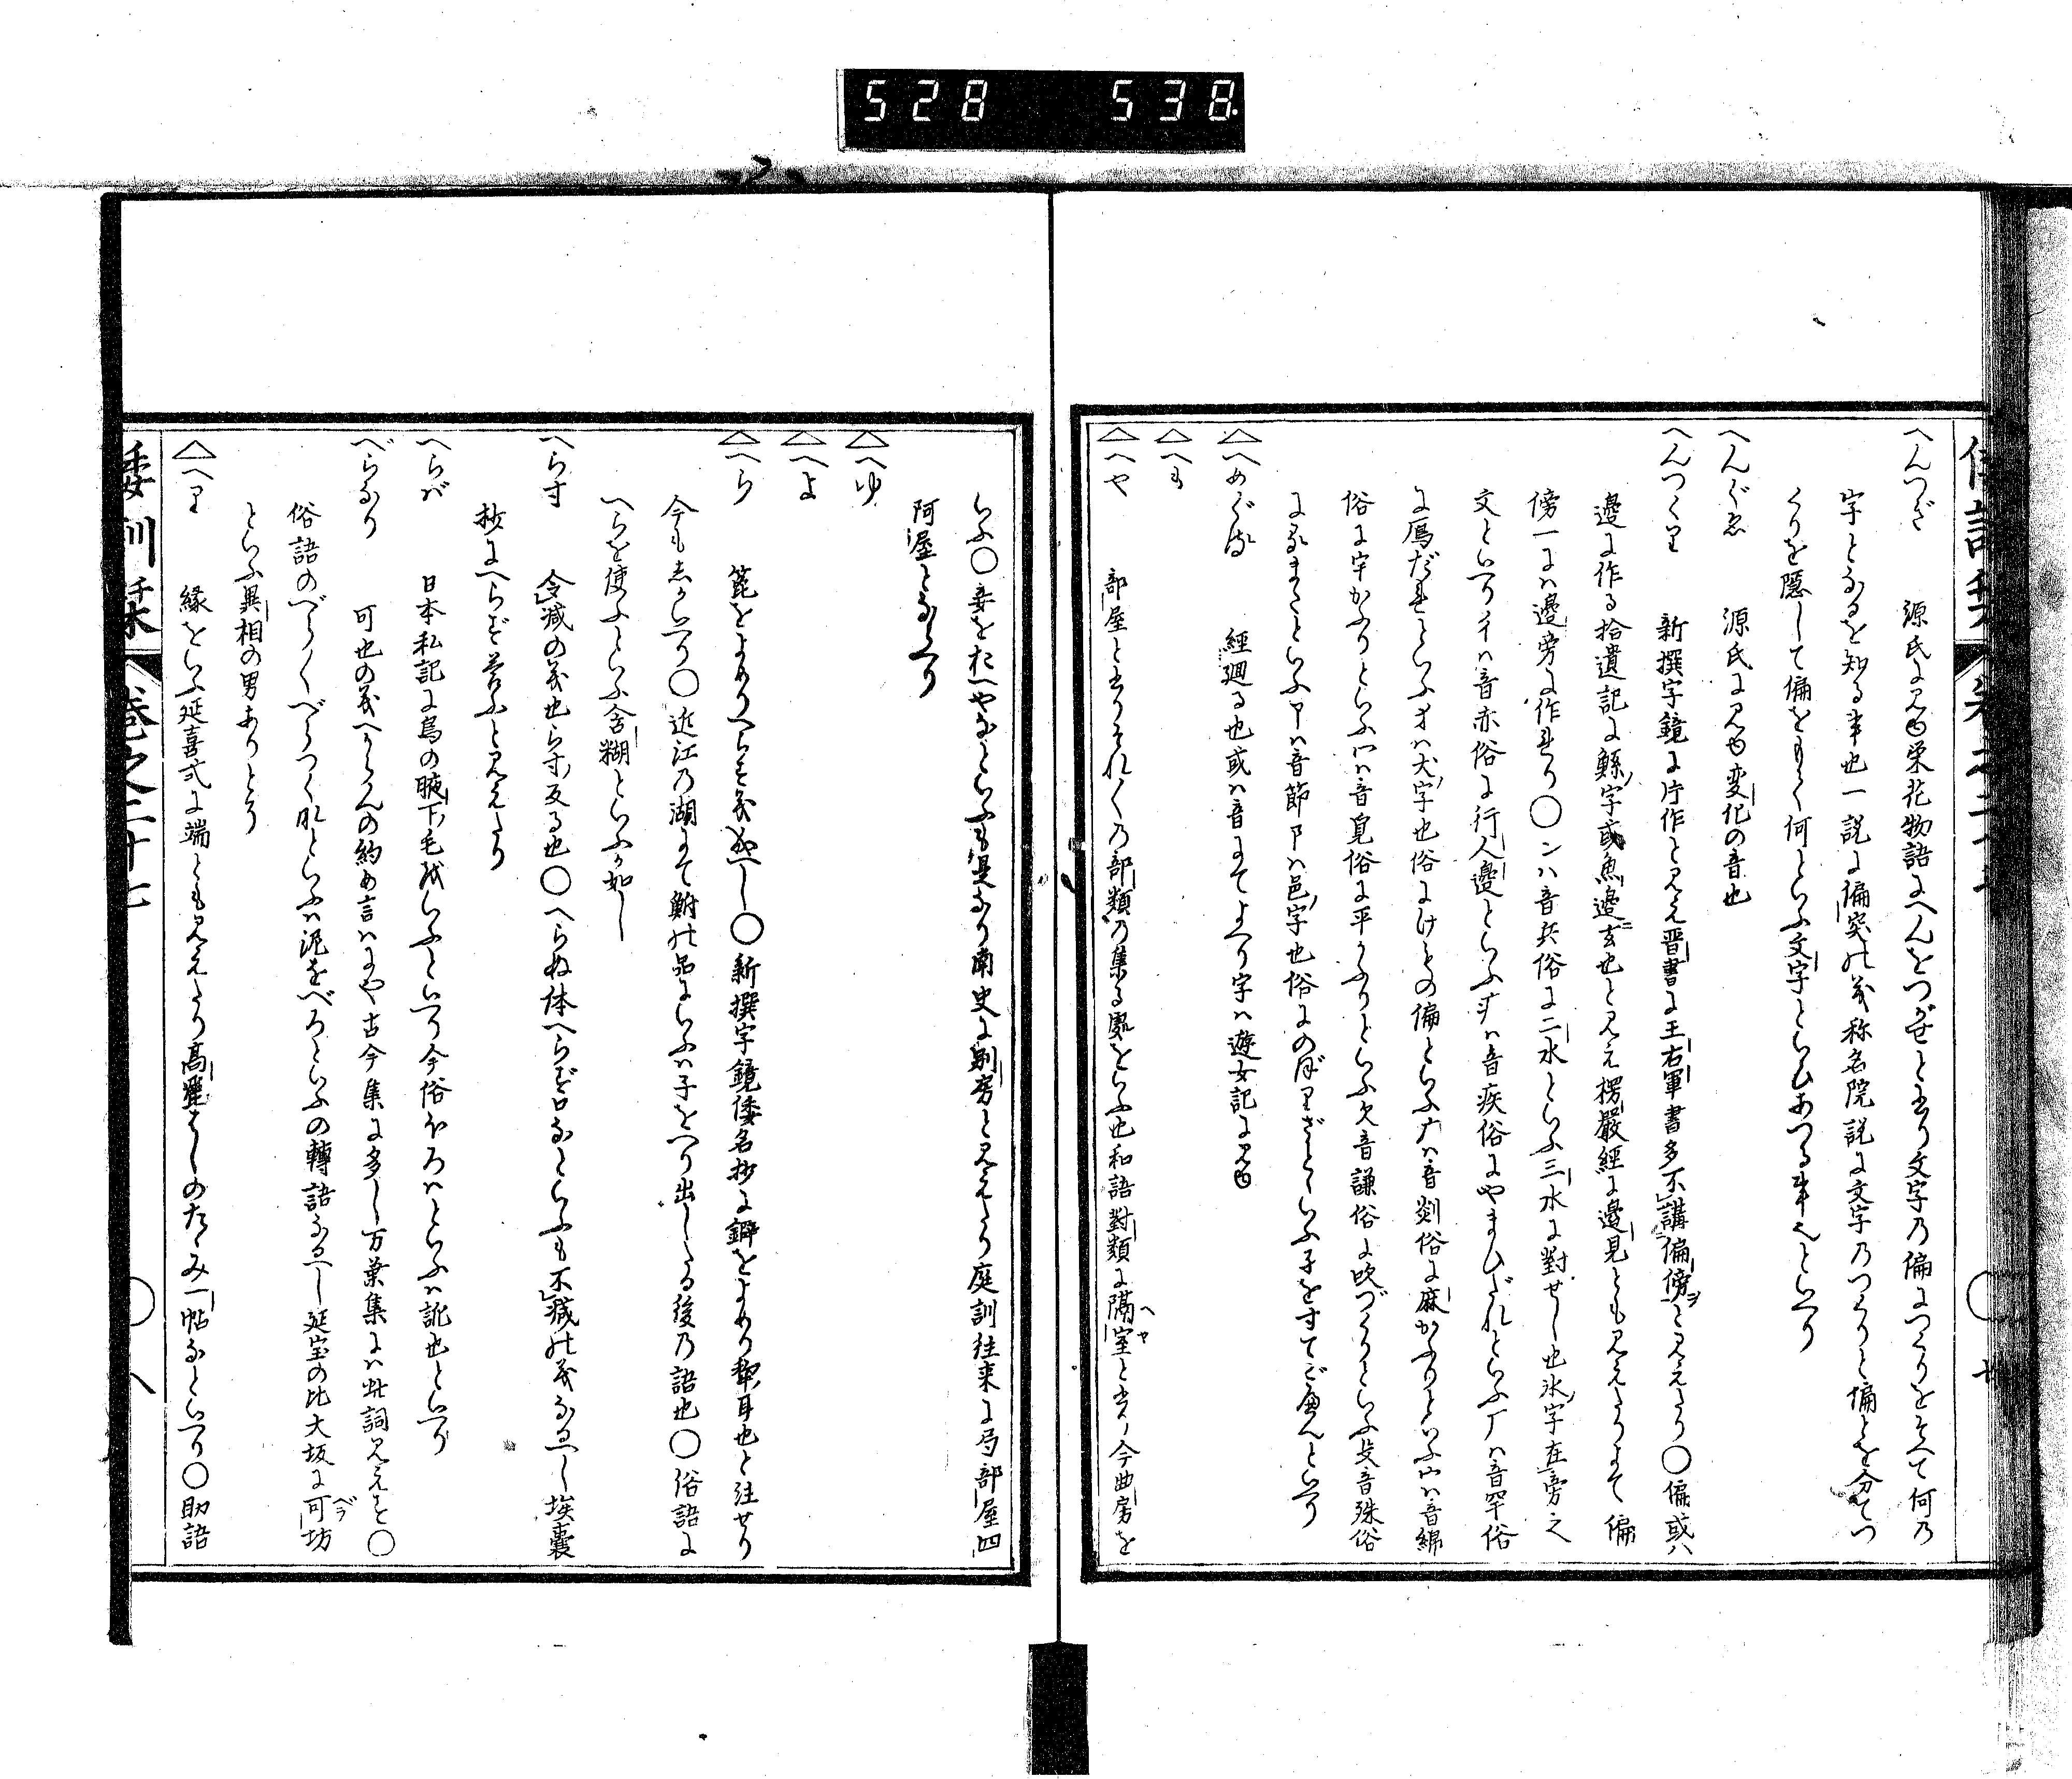 528 538
へんつぎ 源氏に見ゆ栄花物語にへんをつがせと書り文字乃偏につくりをそへて何乃
字となるを知る事也一説に偏突の義称名院説に文字乃つくりと偏とを分てつ
くりを隠して偏をもて何といふ文字といひあつる事也といへり
へんげ 源氏に見ゆ変化の音也
へんつくり 新撰字鏡に片作と見え晋書に王右軍書多不講偏傍と見えたり〇偏或ハ
邊に作る拾遺記に鯀字或魚邊玄也と見え楞嚴經に邊見とも見えたりよて偏
傍一にハ邊旁に作れり〇冫ハ音兵俗に二水といふ三水に對せし也氷字在旁之
文といへり彳ハ音亦俗に行人邊といふ疒ハ音疾俗にやまひだれといふ厂ハ音罕俗
に雁だれといふ犭ハ犬字也俗にけものの偏といふ广ハ音剡俗に麻かふりといふ宀ハ音綿
俗に宇かふりといふ冖ハ音覓俗に平かふりといふ欠音謙俗に吹づくりといふ殳音殊俗
にるまたといふ卩ハ音節阝ハ邑字也俗にのぼりざとといふ孑をすてごへんといへり
△へめぐる 經廻る也或ハ音にてよへり字ハ遊女記に見ゆ
△へも
△へや 部屋と書りそれ〱乃部類乃集る處をいふ也和語對類に隔室と書り今曲房を
いふ〇妾をおへやなといふも是なり南史に別房と見えたり庭訓往来に局部屋四
阿屋となへり
△へゆ
△へよ
△へら 箆をよめりへらす義成へし〇新撰字鏡倭名抄に鐴をよめり犂耳也と注せり
今もしかいへり〇近江乃湖にて鮒の品にいふハ子をへり出したる後乃語也〇俗語に
へらを使ふといふ含糊といふか如し
へらす 令減の義也らす反る也〇へらぬ体へらず口なといふも不減の義なるへし埃嚢
抄にへらず荅ふと見えたり
へらバ 日本私記に鳥の腋下毛我いふといへり今俗ほろハといふハ訛也といへり
べらなり 可也の義へからんの約め言ハにや古今集に多し万葉集にハ此詞見えす〇
俗語のべら〱べらつくなといふハ泥をべろといふの轉語なるへし延宝の比大坂に可坊
といふ異相の男ありとそ
△へり 縁をいふ延喜式に端とも見えたり高麗はしのたゝみ一帖なといへり〇助語
倭訓栞 巻之二十七 〇八